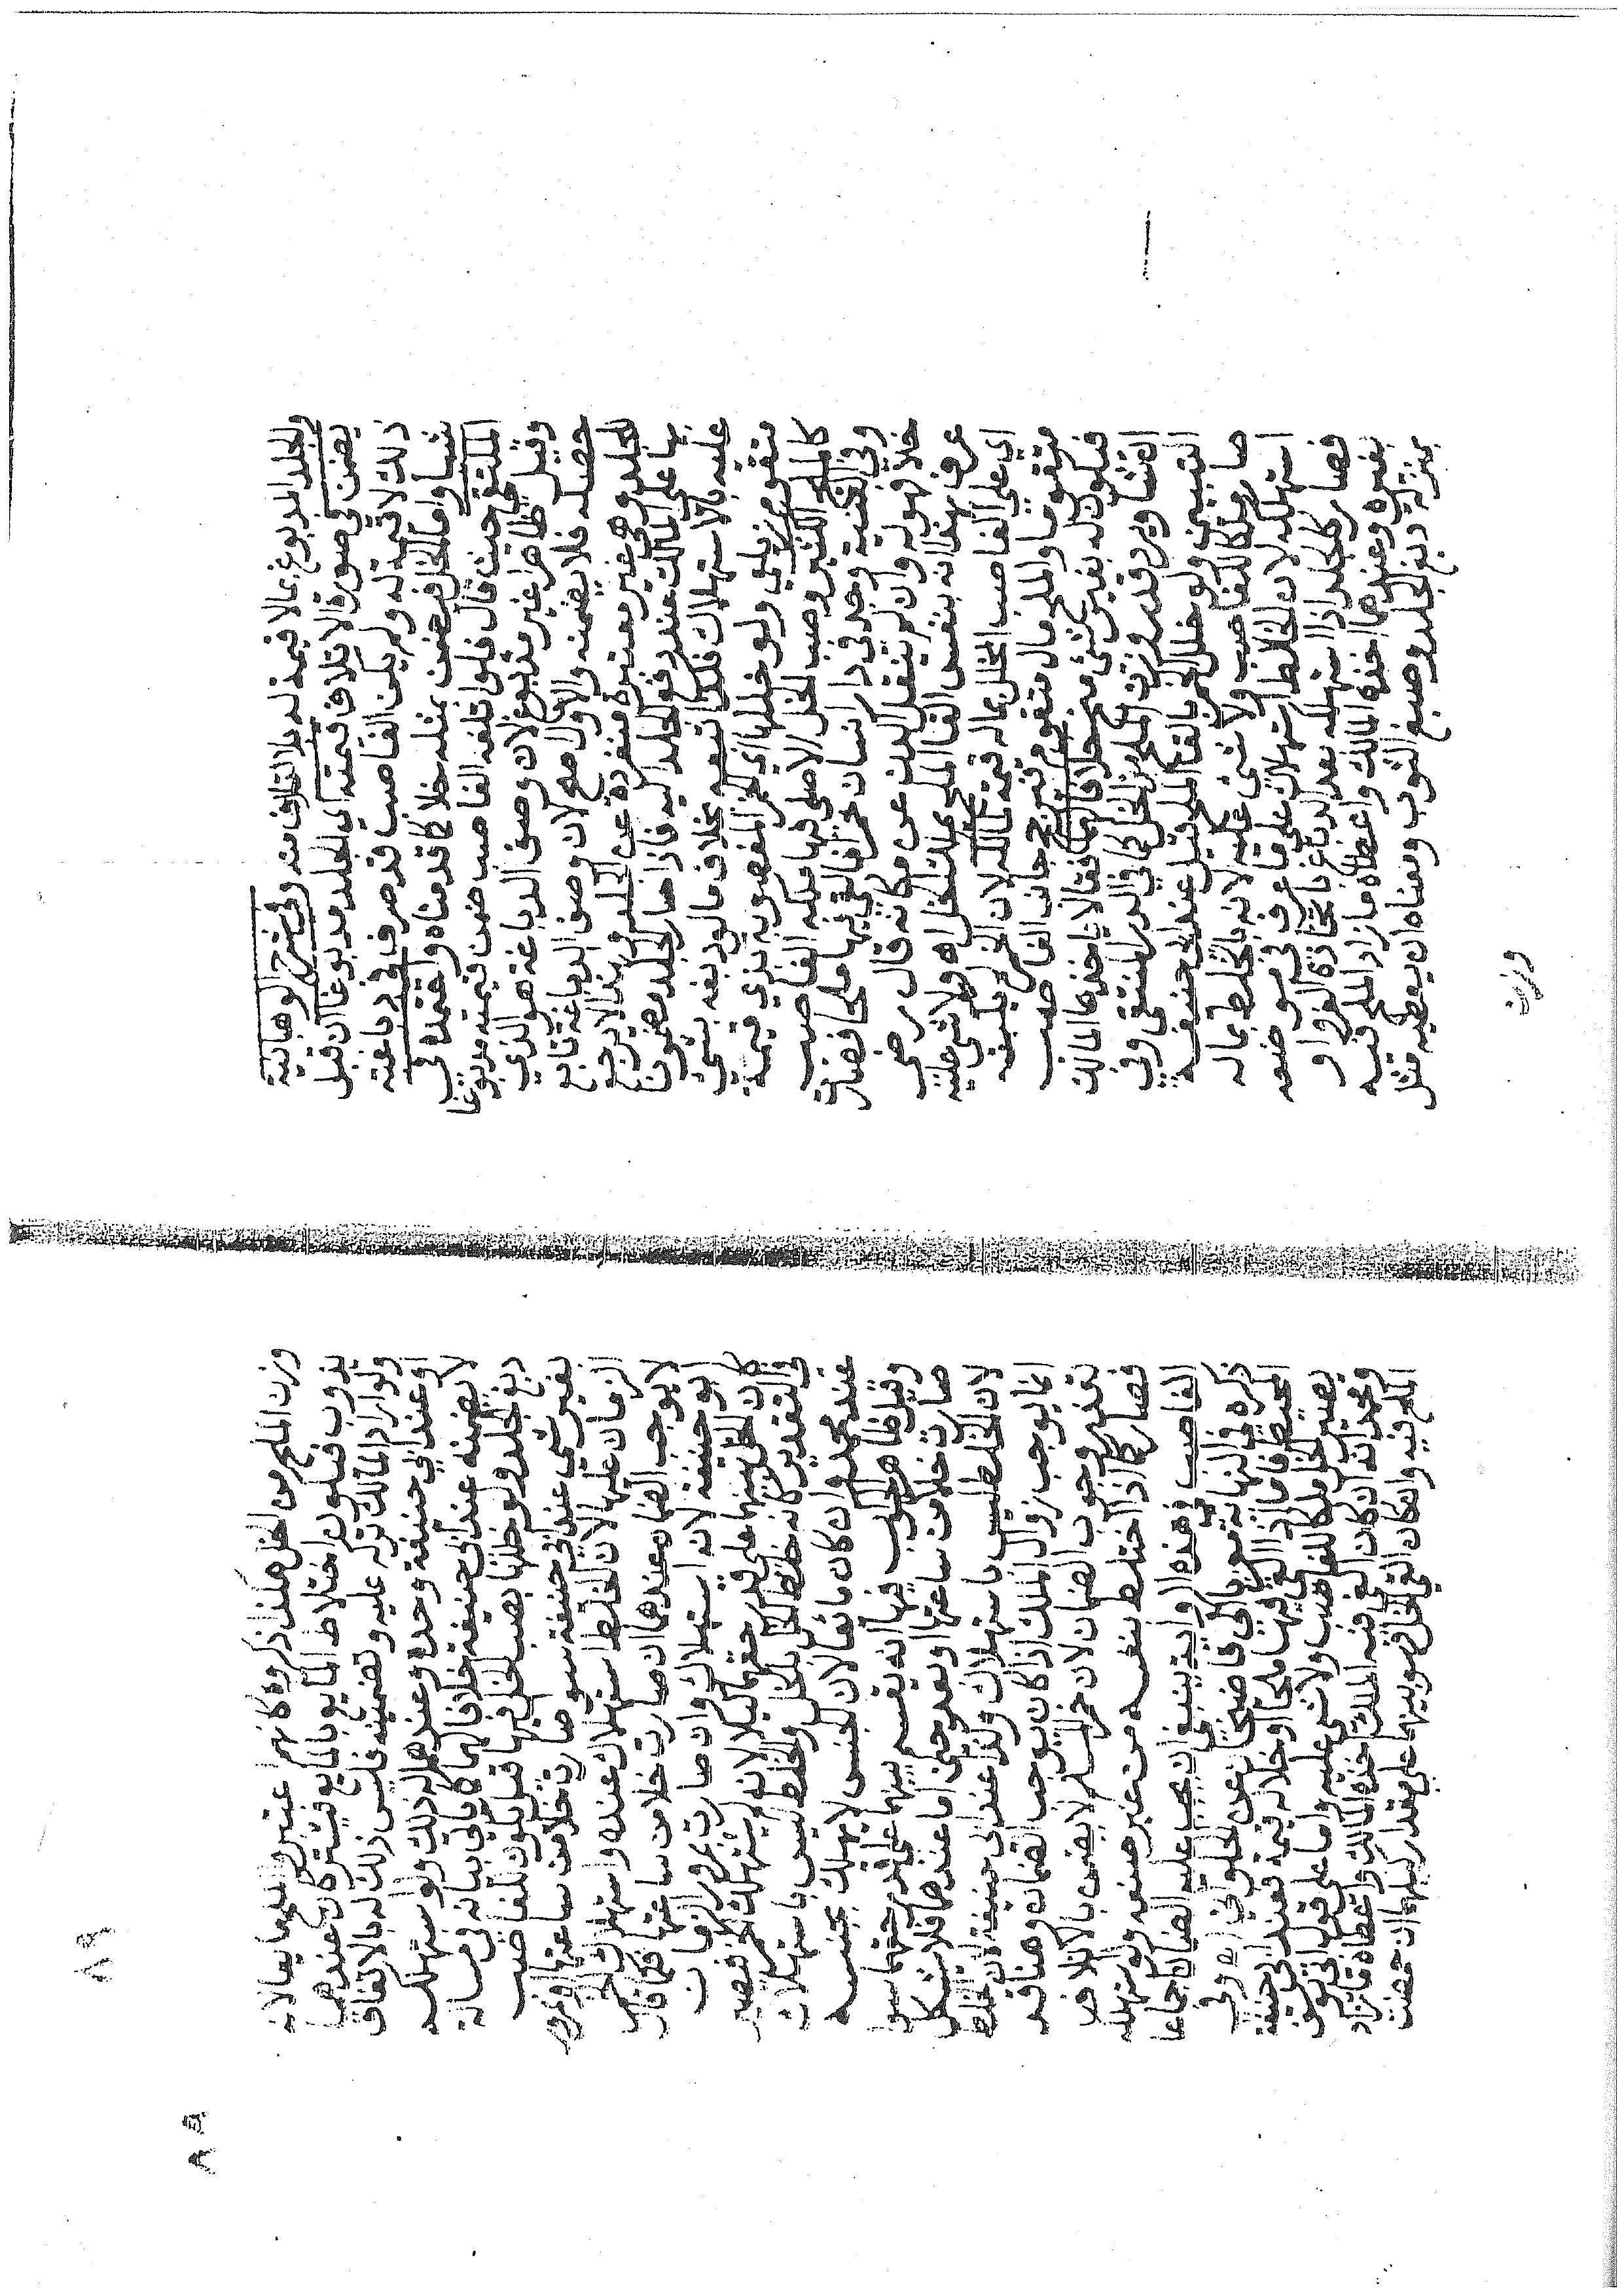 والجلد المدبوغ بما لا قيمة له بلا تلاف منه وفي شرح الوهبانية
يضمن في صورة الاتلاف قيمته اي الجلد مدبوغا ان قبل
ذلك لا قيمة له ولم يكن الغاصب قد صرف في دباغته
شيئا واما الخل فيضمن بمثله خلا كما قدمناه واعتمده في
الملتقى حيث قال فلو اتلفه الغاصب ضمن قيمته مدبوغا
وقيل طاهرا غير مدبوغ لان وصف الدباغة هو الذي
حصله فلا يضمنه والاول اصح لان وصف الدباغة تابع
للجلد وهي غير معتبرة منفردة عن الجلد ولهذا لا يرجع
بها على المالك عند دفع الجلد اليه فاذا صار الجلد مضمونا
عليه بالاستهلاك فكذا تبعه بخلاف ما لو دبغه بشيء
متقوم زيلعي ولو خللها اي الخمر المغصوبة بذي قيمة
كالملح الكثير وصب الخل الاصلي فيها ملكه الغاصب
وفي القنية وجد في دار انسان خمرا فالقى فيها ملحا فصارت
خلا فهو له وان لم ينقل الدن عن مكانه قال رضي
عرف بهذا انه بنفس القاء الملح يملك الخل اه ولا شيء عليه
اي على الغاصب الخلل بماله قيمة لمالكه لان الخمر لم يكن
متقوما والملح مال متقوم فيرجح جانب الغاصب
فيكون له بغير شيء منح خلافا لهما فقالا ياخذها المالك
ان شا ويرد قدر وزن الملح من الخل كما في الدر المنتقى وفي
التبيين ولو خلل الخمر بالقا الملح قيل عند ابي حنيفة
صار ملكا للغاصب ولا شيء عليه لانه بالخلط بماله
استهلكه لان الخلط استهلاك على ما عرف في موضعه
فصار كالجلد اذا استهلكه بعد الدباغ باتخاذه الفرو او
بغيره وعندهما اخذه المالك واعطاه ما زاد الملح فيه
بمنزلة دبغ الجلد وصبغ الثوب ومعناه ان يعطيه مثل
وزن
وزن الملح من الخل هكذا ذكروه كانهم اعتبروا الملح مايعا لانه
يذوب فيكون اختلاط المايع بالمايع فيشتركان عندهما
ولو اراد المالك تركه عليه وتضمينه فليس ذلك له بالاتفاق
او عند ابي حنيفة وحده وعندهما له ذلك ولو استهلكه
لا يضمنه عند ابي حنيفة خلافا لهما كما ياتي بيانه في مسالة
دبغ الجلد ولو خللها بصب الخل فيها قيل يكون للغاصب
بغير شيء عند ابي حنيفة سوا صارت خلا من ساعتها او بمرور
الزمان عليها لان الخلط استهلاك عنده واستهلاك الخمر
لا يوجب الضمان وعندهما ان صارت خلا من ساعتها فكما قال
ابو حنيفة لانه استهلاك وان صارت بمرور الزمان
كان الخل بينهما على قدر حقهما كيلا لانه لم يستهلك الخمر فيصير
في التقدير كانه خلط الخل بالخل والخلط ليس باستهلاك
عند محمد وان كان مائعا لان الجنس لا يهلك بجنسه
وقيل ظاهر الجواب فيها انه يقسم بينهما على قدر حقهما سوا
صارت خلا من ساعتها او بعد حين اما عندهما فلا يشكل
لان الخلط ليس باستهلاك وكذا عند ابي حنيفة لان الخلط
انما يوجب زوال الملك اذا كان يوجب الضمان وهنا قد
تعذر وجوب الضمان لان خمر المسلم لا يضمن بالاتلاف
فصار كما اذا اختلط بنفسه من غير صنعه ولو استهلكه
الغاصب في هذه الرواية ينبغي ان يجب عليه الضمان اجماعا
ذكره في النهاية معزيا الى قاضيخان عن الحلواني اه وفي
المحيط فاما اذا القى فيها ملحا او خلا له قيمة فعند ابي حنيفة
يصير الخل ملكا للغاصب ولا شيء عليه واما على قول ابي يوسف
ومحمد انه ان كان القى فيه الملح اخذه المالك واعطاه ما زاد
الملح فيه وان كان القى الخل فهو بينهما على مقدار كيلهما ان خمضت
٨٩
٨٩